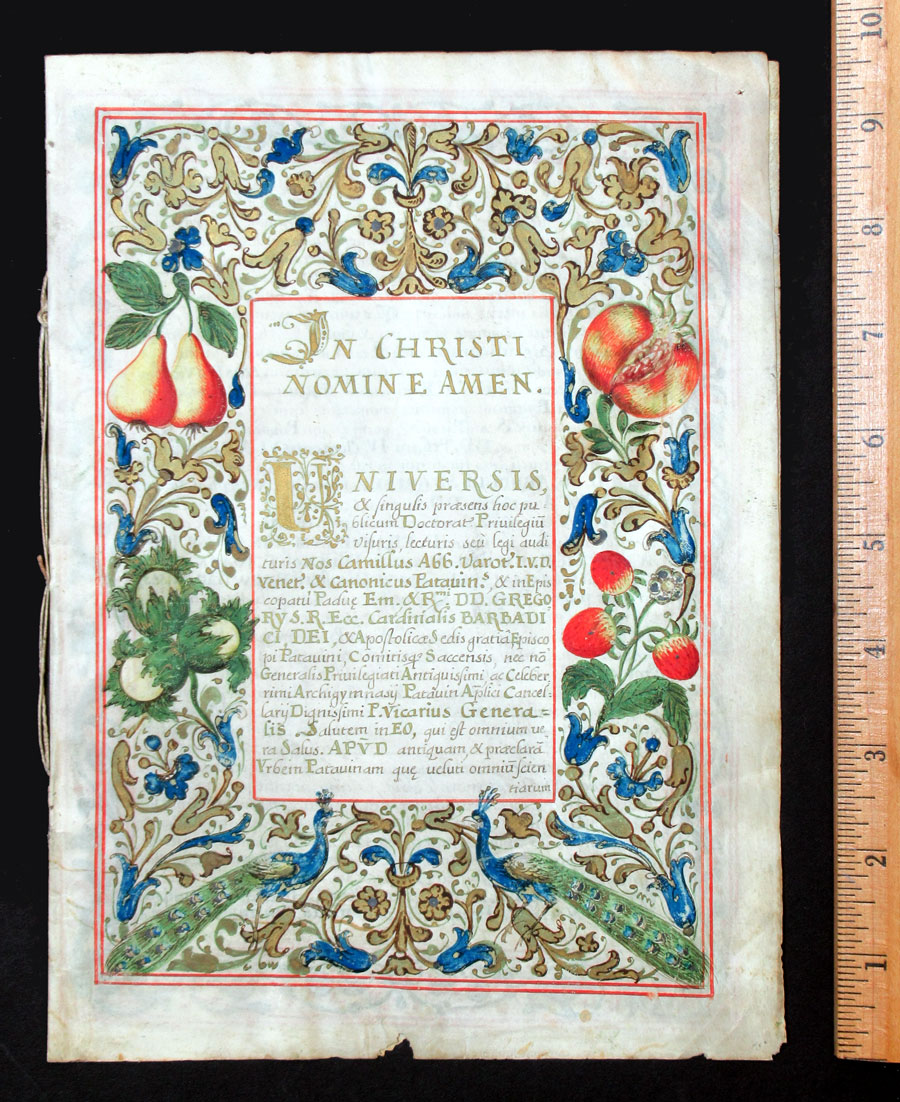 IN CHRISTI
NOMINE AMEN.
UNIVERSIS,
& singulis præsens hoc pu
blicum Doctorat. Privilegiū
visuris, lecturis seù legi audi
turis Nos Camillus Abb. Varot. I.V.D.
Venet.s & Canonicus Patavin.s, & in Epis
copatu Paduę Em. & R.mi DD. GREGO
RY S. R. Ecc. Cardinalis BARBADI
CI DEI, & Apostolicæ Sedis gratia Episco
pi Patavini, Comitisq. Saccensis, nec nō
Generalis Privilegiati Antiquissimi, ac Celeber
rimi Archigymnasij Patavin Aplici Cancel-
larij Dignissimi P. Vicarius Genera=
lis, Salutem in EO, qui est omnium ve
ra Salus. APVD antiquam, & præclarā
Vrbem Patavinam quę veluti omniū scien
tiarum
10
9
8
7
6
5
4
3
2
1